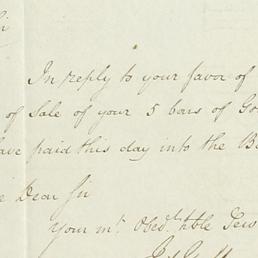 In reply to your favor of
of Sale of your 5 bars of Go
have paid this day into the B
Dear Sir
Your mt. Obedt. hble Serv